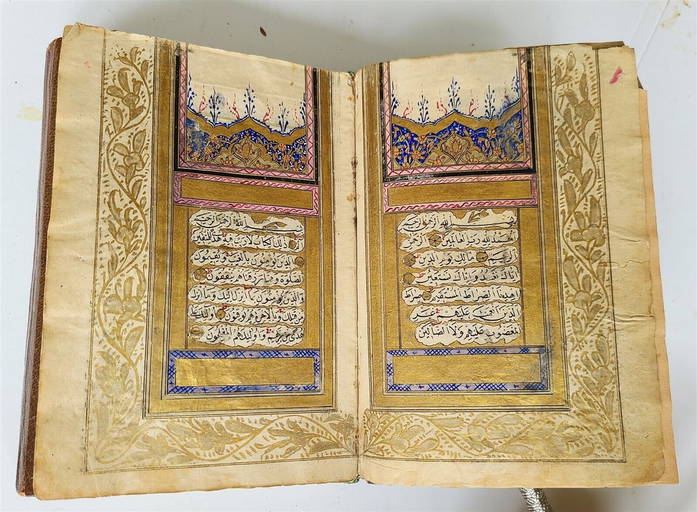 بسم الله الرحمن الرحيم
الحمد لله رب العالمين الرحمن
الرحيم مالك يوم الدين
اياك نعبد واياك نستعين
اهدنا الصراط المستقيم صراط
الذين انعمت عليهم غير
المغضوب عليهم ولا الضالين
بسم الله الرحمن الرحيم
الم ذلك الكتاب لا ريب فيه هدى للمتقين
الذين يؤمنون بالغيب ويقيمون
الصلوة ومما رزقناهم ينفقون
والذين يؤمنون بما انزل اليك وما انزل
من قبلك وبالاخرة هم يوقنون اولئك على
هدى من ربهم واولئك هم المفلحون